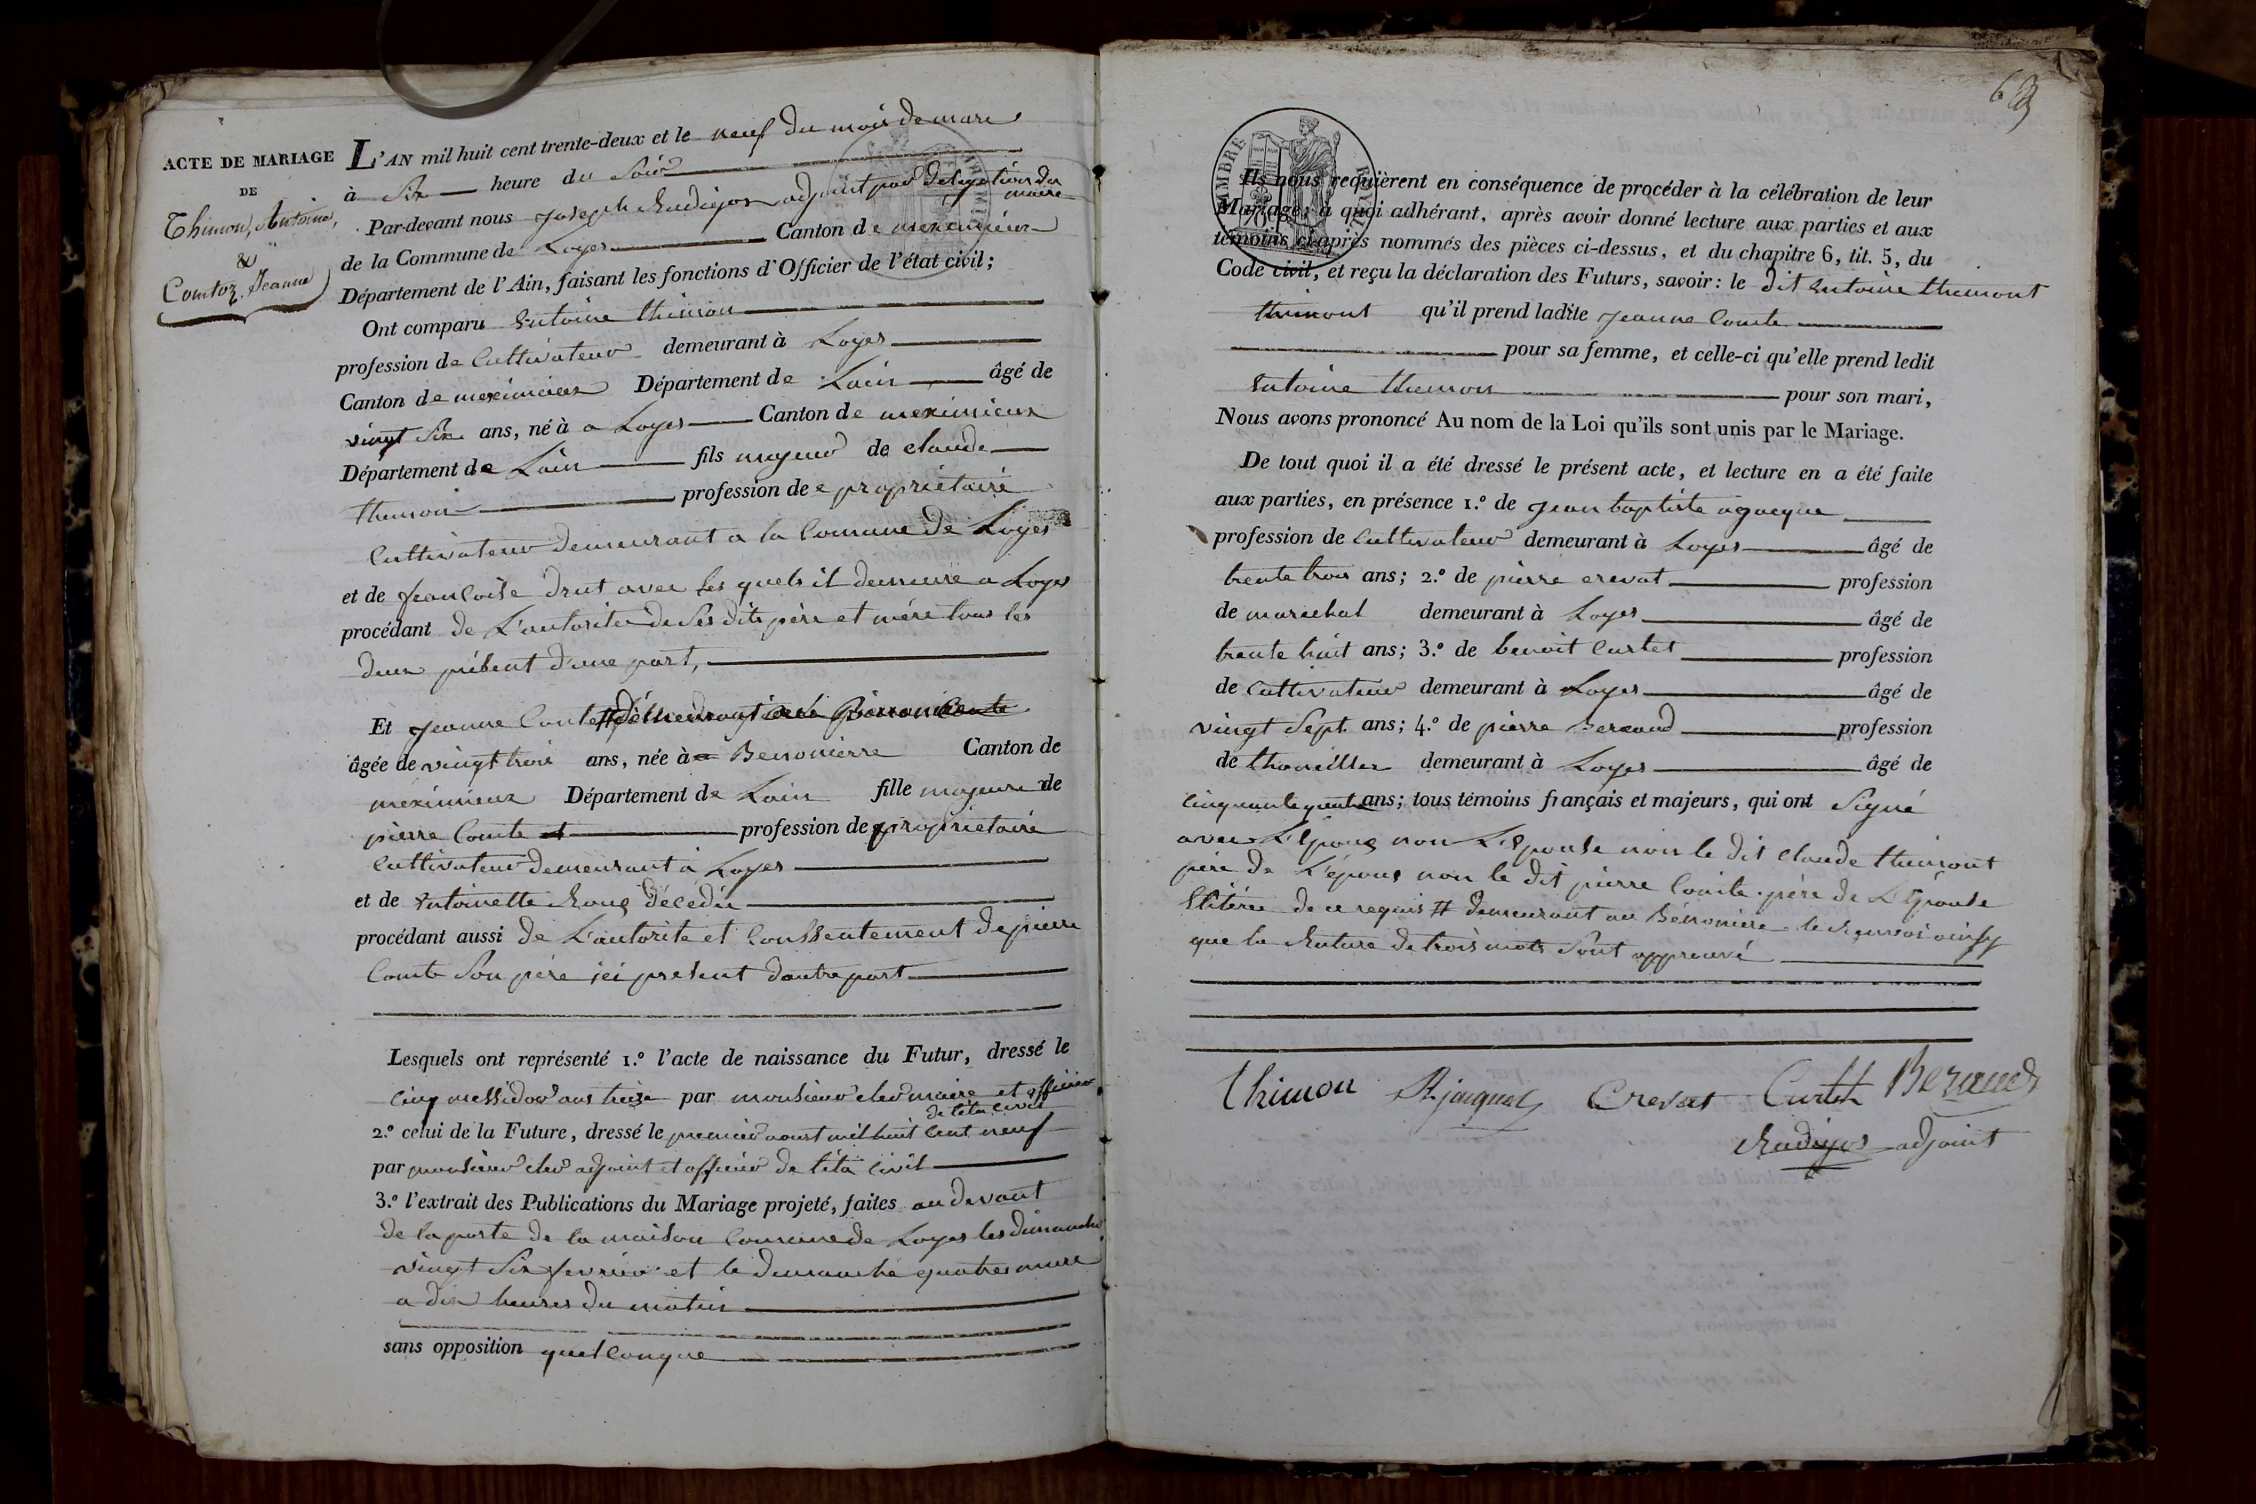 ACTE DE MARIAGE
DE
Thimon, Antoine,
&
Comtoz, Jeanne
L'AN mil huit cent trente-deux et le neuf du mois de mars
à Six heure du Soir
Par-devant nous Joseph Rudigoz adjoint par delegation du
maire
de la Commune de Loyes Canton de meximieux
Département de l'Ain, faisant les fonctions d'Officier de l'état civil;
Ont comparu antoine thimon
profession de Cultivateur demeurant à Loyes
Canton de meximieux Département de Lain âgé de
vingt Six ans, né à a Loyes Canton de meximieux
Département de Lain fils majeur de claude
thimon profession de propriétaire
Cultivateur demeurant a la Comune de Loyes
et de francoise drut avec les quels il demeure a Loyes
procédant de L'autorite de Ses dits père et mère tous les
deux présent d'une part,
Et Jeanne Comte #
âgée de vingt trois ans, née à Benonierre Canton de
meximieux Département de Lain fille majeure de
pierre Comte profession de propriétaire
Cultivateur demeurant à Loyes
et de antoinette Roug décédée
procédant aussi de L'autorite et Conssentement de pierre
Comte Son père ici present d'autre part
Lesquels ont représenté 1.º l'acte de naissance du Futur, dressé le
cinq messidor ans treize par monsieur cler maire et officier
de l'éta civil
2.º celui de la Future, dressé le premier aoust mil huit Cent neuf
par monsieur cler adjoint et officier de l'éta Civil
3.º l'extrait des Publications du Mariage projeté, faites au devant
de la porte de la maison Comune de Loyes les dimanche
vingt Six fevrier et le dimanche quatres mars
a dix heures du matin
sans opposition quelconque
69
TIMBRE ROYAL
Ils nous requièrent en conséquence de procéder à la célébration de leur
Mariage; à quoi adhérant, après avoir donné lecture aux parties et aux
témoins ci-après nommés des pièces ci-dessus, et du chapitre 6, tit. 5, du
Code civil, et reçu la déclaration des Futurs, savoir: le dit antoine thimont
thimont qu'il prend ladite Jeanne Comte
pour sa femme, et celle-ci qu'elle prend ledit
antoine thimon pour son mari,
Nous avons prononcé Au nom de la Loi qu'ils sont unis par le Mariage.
De tout quoi il a été dressé le présent acte, et lecture en a été faite
aux parties, en présence 1.º de Jean baptiste
profession de Cultivateur demeurant à Loyes âgé de
trente trois ans; 2.º de pierre crevat profession
de marechal demeurant à Loyes âgé de
trente huit ans; 3.º de benoit Curtet profession
de Cultivateur demeurant à Loyes âgé de
vingt Sept ans; 4.º de pierre Beraud profession
de demeurant à Loyes âgé de
cinquante quatre ans; tous témoins français et majeurs, qui ont Signé
avec L'Epoux non L'Epouse non le dit claude thimont
père de L'époux non le dit pierre Comte père de L'Epouse
de ce requis # demeurant au Bénoniere le Renvoi ainsy
que la Rature de trois mots Sont approuvé
Thimon Crevat Curtet Beraud
Rudigoz adjoint